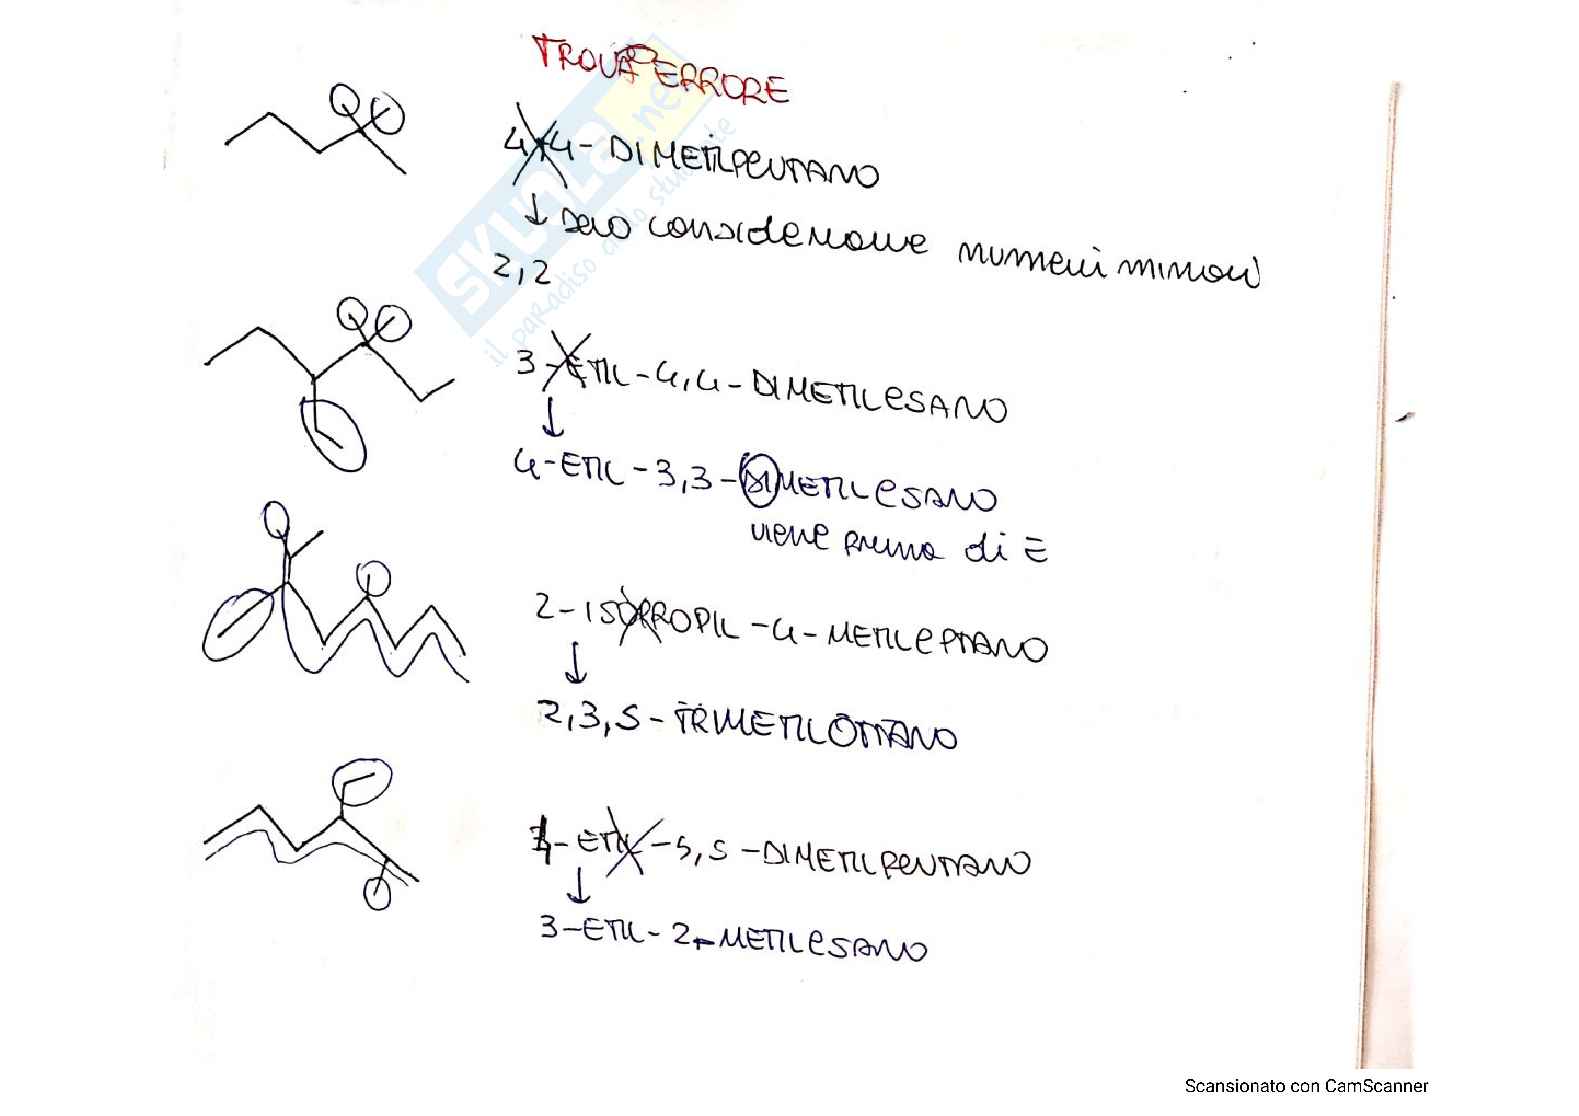 TROVA L'ERRORE
4,4-DIMETILPENTANO
↓ devo considerare numeri minori
2,2
3-ETIL-4,4-DIMETILESANO
↓
4-ETIL-3,3-DIMETILESANO
viene prima di E
2-ISOPROPIL-4-METILEPTANO
↓
2,3,5-TRIMETILOTTANO
-ETIL-5,5-DIMETILPENTANO
↓
3-ETIL-2-METILESANO
SKUOLA.net
il paradiso dello studente
Scansionato con CamScanner